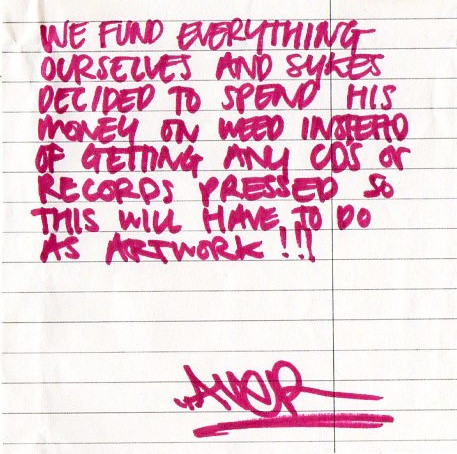 WE FUND EVERYTHING
OURSELVES AND SYKES
DECIDED TO SPEND HIS
MONEY ON WEED INSTEAD
OF GETTING ANY CD'S OR
RECORDS PRESSED SO
THIS WILL HAVE TO DO
AS ARTWORK !!!
AVER